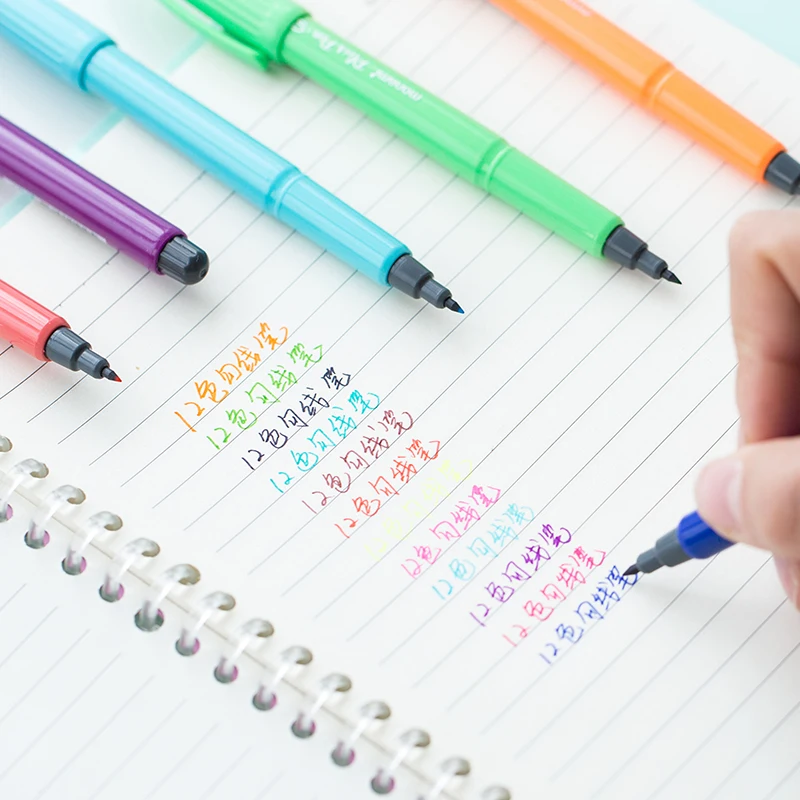 monami Plus Pen S
12色勾线笔
12色勾线笔
12色勾线笔
12色勾线笔
12色勾线笔
12色勾线笔
12色勾线笔
12色勾线笔
12色勾线笔
12色勾线笔
12色勾线笔
12色勾线笔